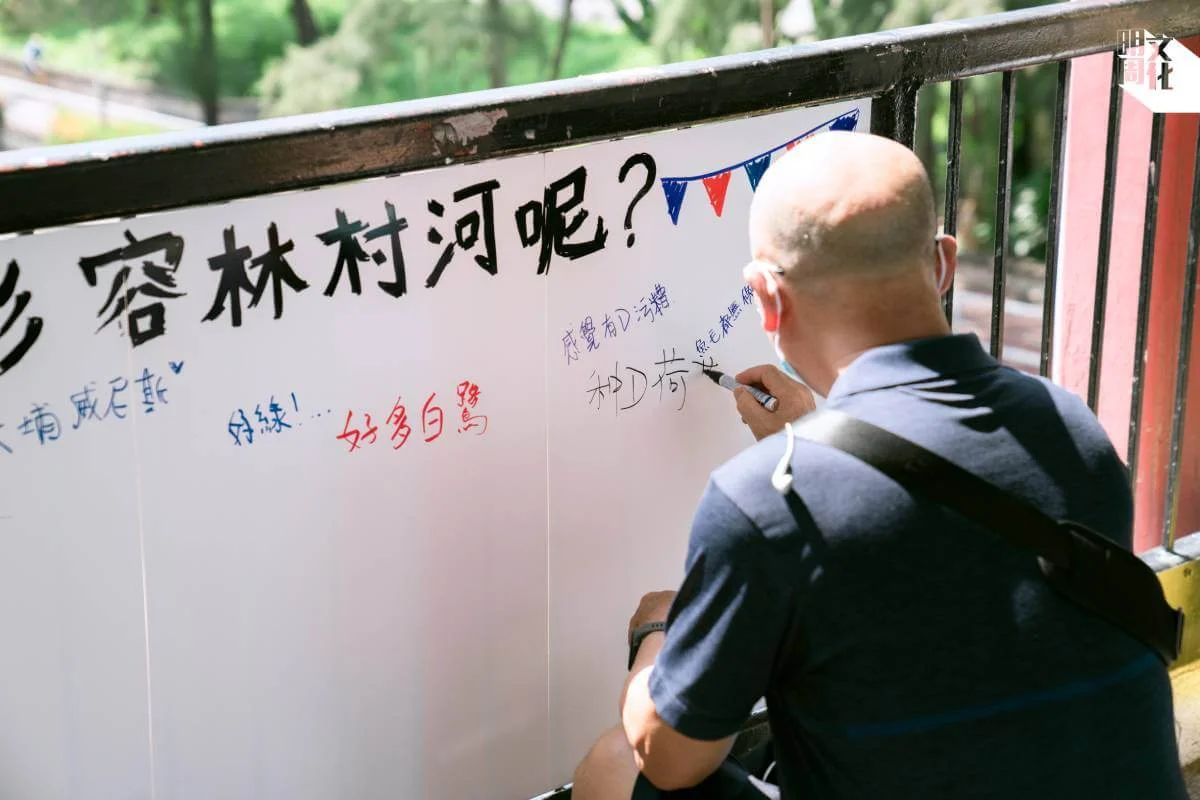 形容林村河呢?
大埔威尼斯
好綠!...
好多白鷺
感覺有D污糟
魚毛都無條
种D荷
明周文化